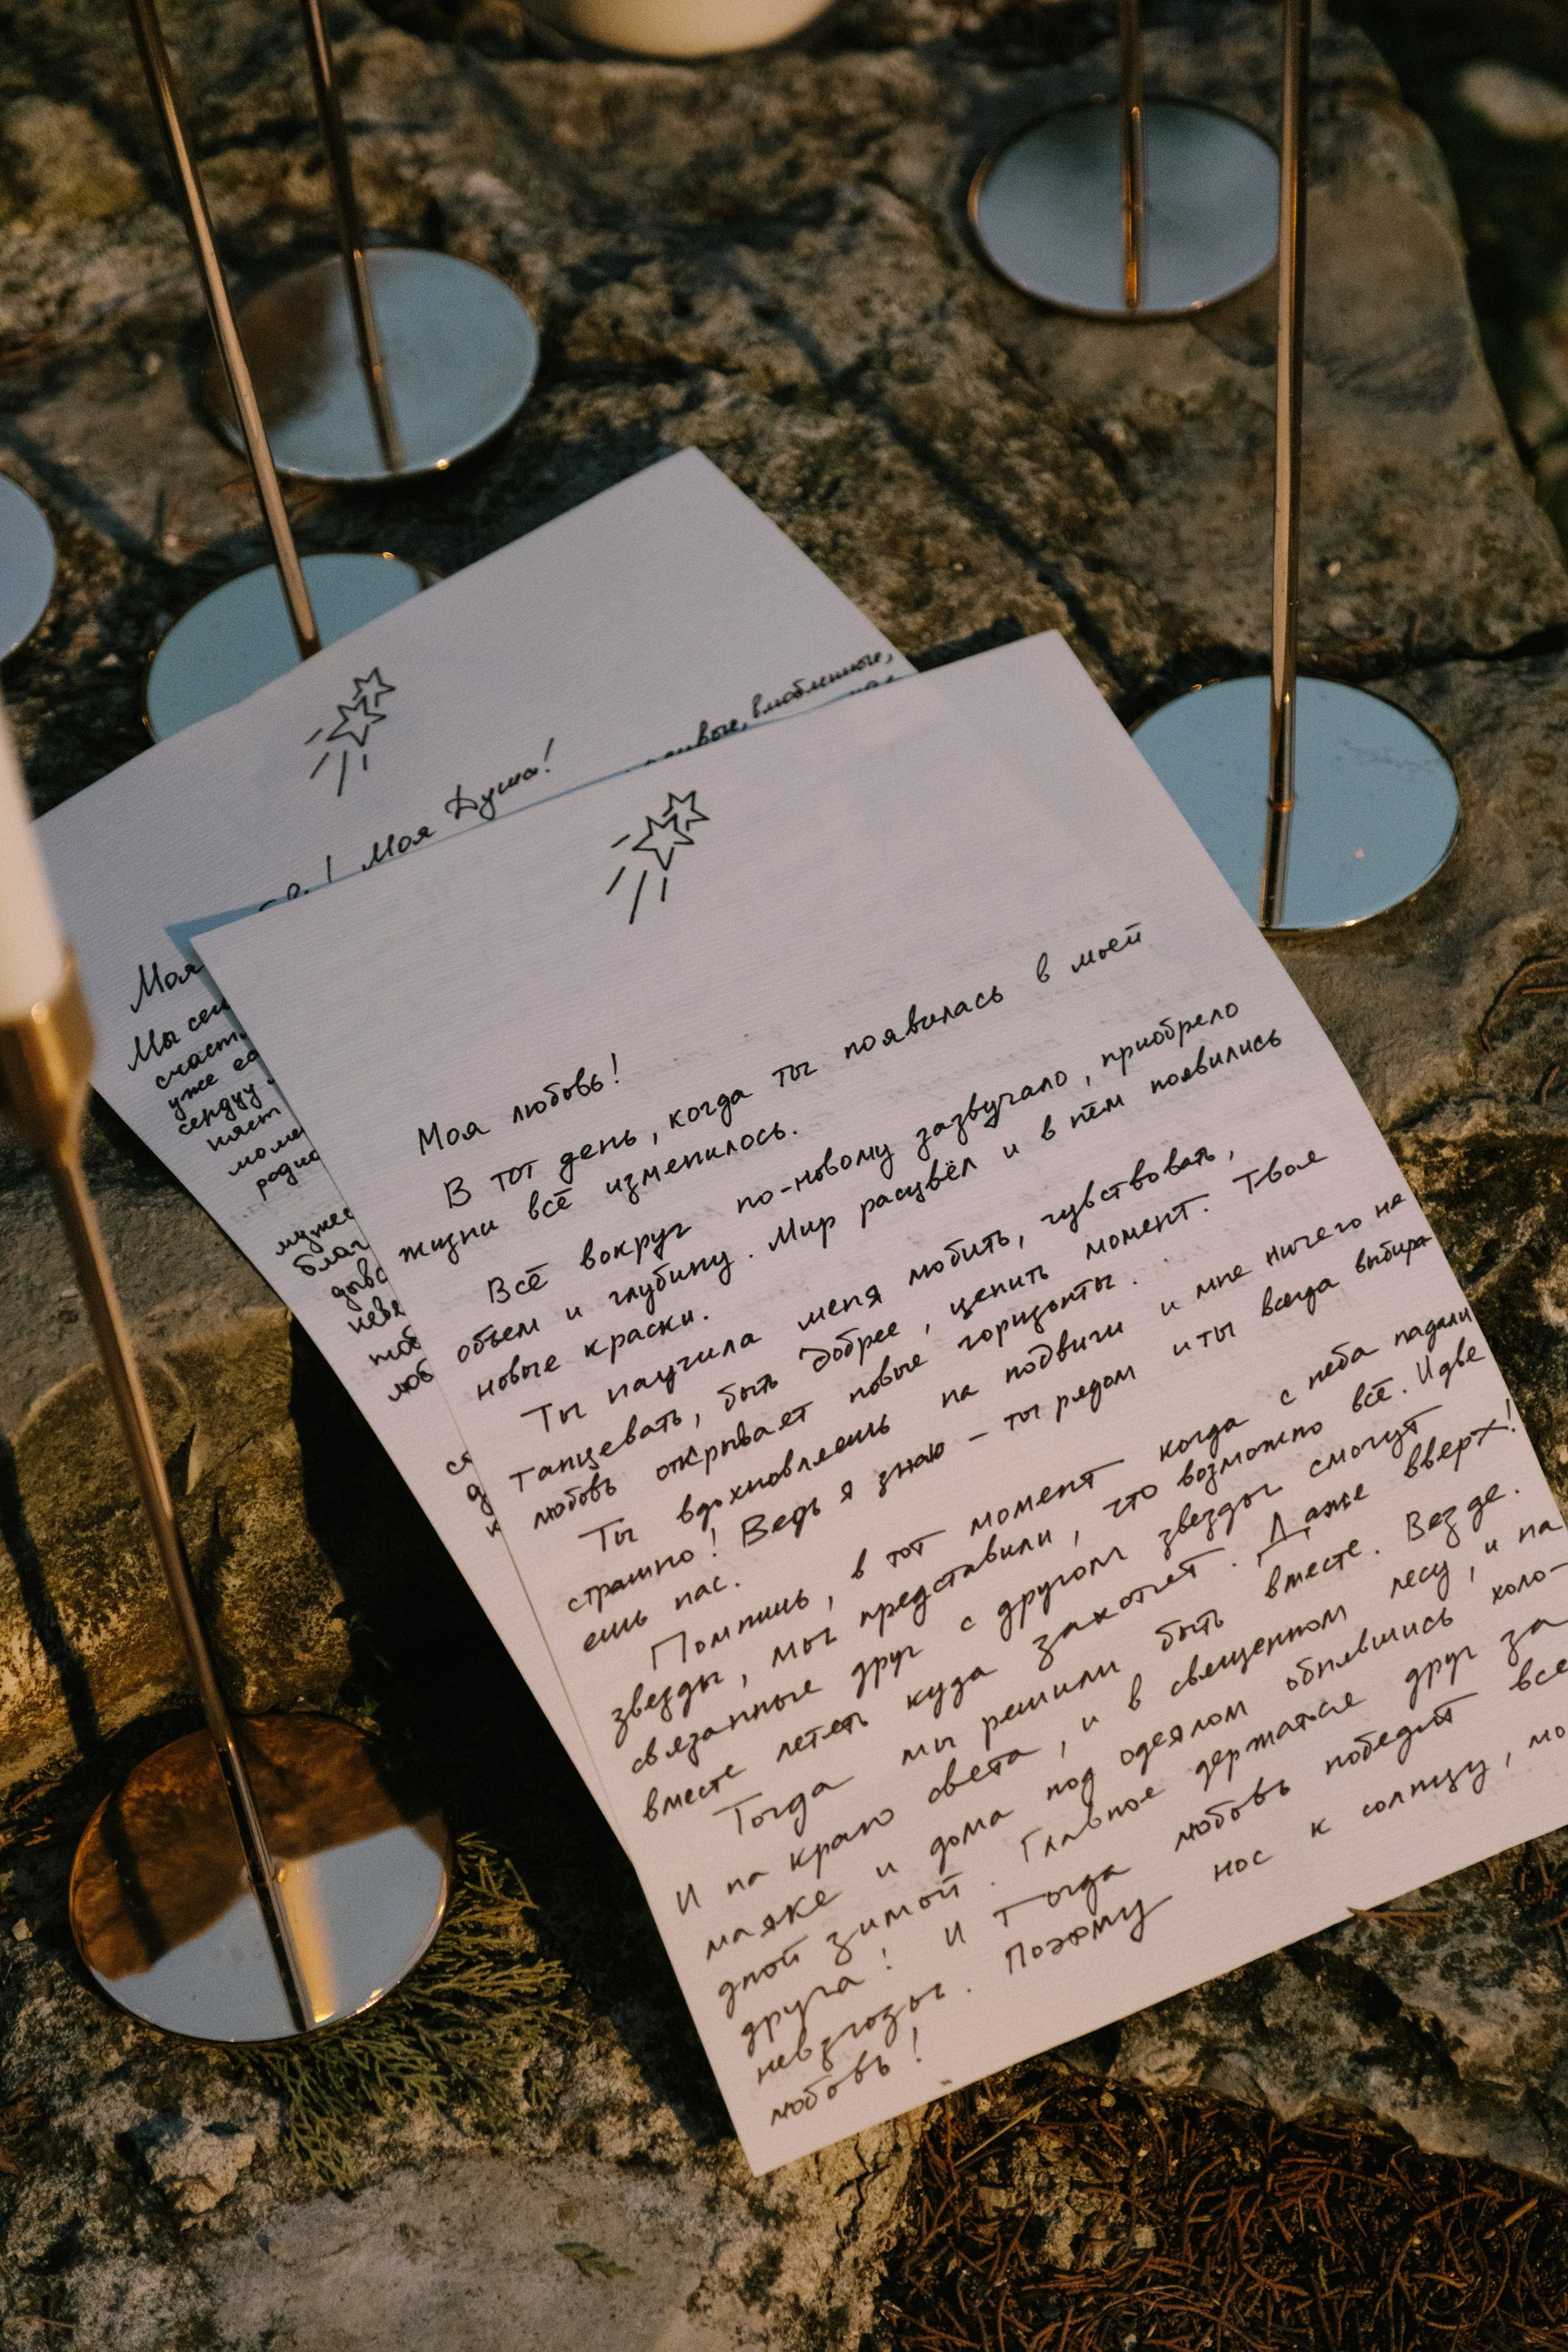 Моя Душа!
Моя
Мы
уже
сердцу
Моя любовь!
В тот день, когда ты появилась в моей
жизни всё изменилось.
Всё вокруг по-новому зазвучало, приобрело
объем и глубину. Мир расцвёл и в нём появились
новые краски.
Ты научила меня любить, чувствовать,
танцевать, быть добрее, ценить момент. Твоя
любовь открывает новые горизонты.
Ты вдохновляешь на подвиги и мне ничего не
страшно! Ведь я знаю – ты рядом и ты всегда выбира
ешь нас.
Помнишь, в тот момент когда с неба падали
звезды, мы представили, что возможно всё. И две
связанные друг с другом звезды смогут
вместе лететь куда захотят. Даже вверх!
Тогда мы решили быть вместе. Везде.
И на краю света, и в священном лесу, и на
маяке и дома под одеялом обнявшись холо-
дной зимой. Главное держаться друг за
друга! И тогда любовь победит все
невзгоды. Поэтому нос к солнцу, мо
любовь!